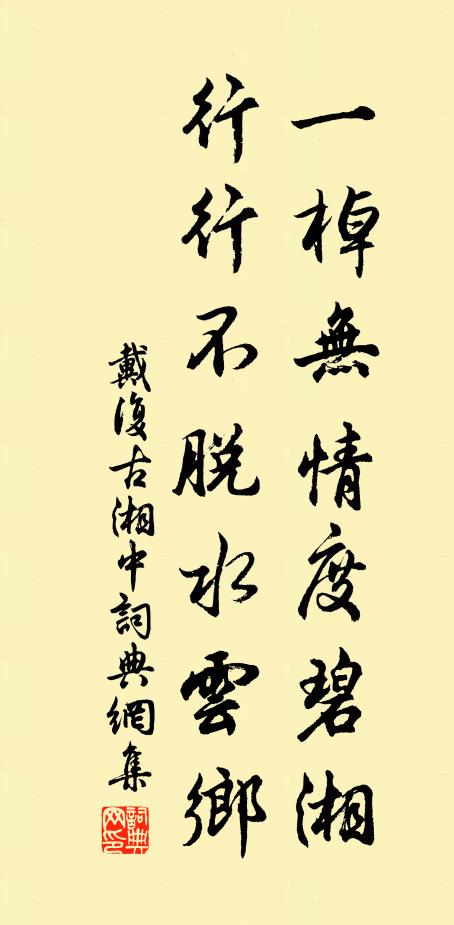 一棹無情度碧湘
行行不脱水雲鄉
戴復古湘中詞典網集
詞典網印